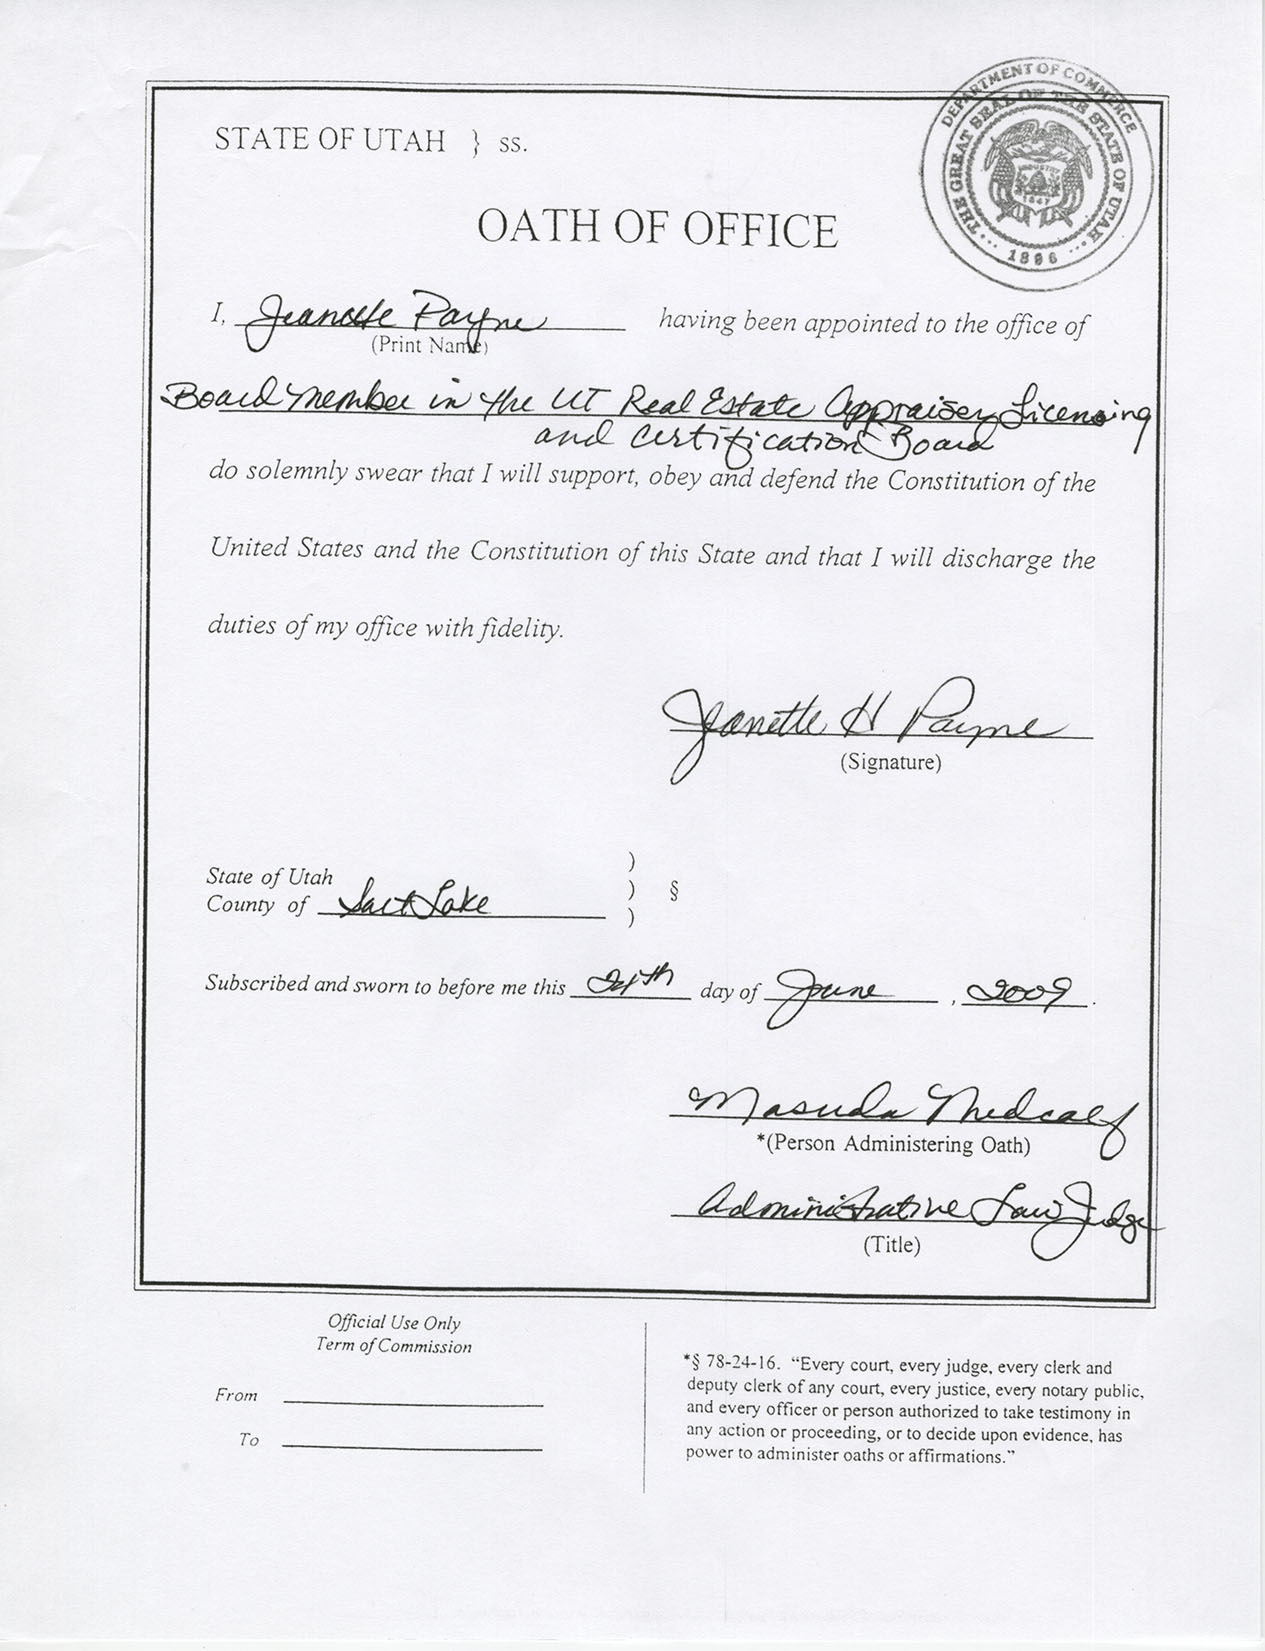 DEPARTMENT OF COMMERCE
THE GREAT SEAL OF THE STATE OF UTAH
INDUSTRY
1847
1896
STATE OF UTAH } ss.
OATH OF OFFICE
I, Jeanette Payne having been appointed to the office of
(Print Name)
Board Member in the UT Real Estate Appraiser Licensing
and Certification Board
do solemnly swear that I will support, obey and defend the Constitution of the
United States and the Constitution of this State and that I will discharge the
duties of my office with fidelity.
Jeanette H Payne
(Signature)
)
State of Utah
) §
County of Salt Lake
)
Subscribed and sworn to before me this 24th day of June, 2009.
Masuda Medcalf
*(Person Administering Oath)
Administrative Law Judge
(Title)
Official Use Only
Term of Commission
From
To
*§ 78-24-16. “Every court, every judge, every clerk and
deputy clerk of any court, every justice, every notary public,
and every officer or person authorized to take testimony in
any action or proceeding, or to decide upon evidence, has
power to administer oaths or affirmations.”